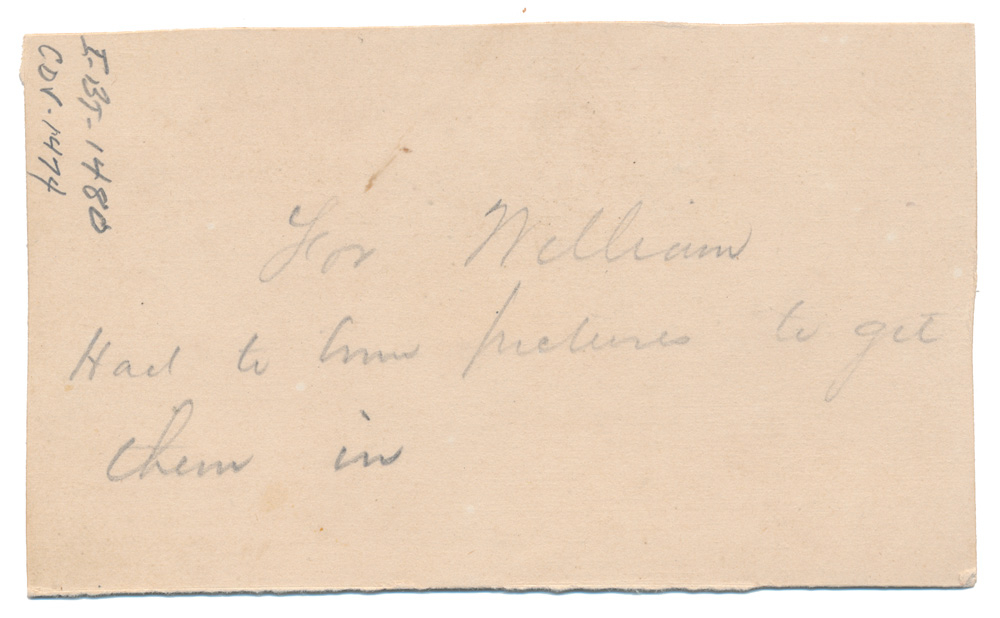 For William
Had to trim pictures to get
them in
CDV-1474